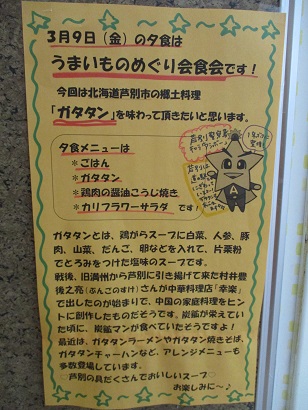 3月9日（金）の夕食は
うまいものめぐり会食会です！
今回は北海道芦別市の郷土料理
「ガタタン」を味わって頂きたいと思います。
夕食メニューは
＊ごはん
＊ガタタン
＊鶏肉の醤油こうじ焼き
＊カリフラワーサラダ　です！
ガタタンとは、鶏がらスープに白菜、人参、豚
肉、山菜、だんご、卵などを入れて、片栗粉
でとろみをつけた塩味のスープです。
戦後、旧満州から芦別に引き揚げて来た村井豊
後之亮（ぶんごのすけ）さんが中華料理店「幸楽」
で出したのが始まりで、中国の家庭料理をヒン
トに創作したものだそうです。炭鉱が栄えてい
た頃に、炭鉱マンが食べていたそうですよ！
最近は、ガタタンラーメンやガタタン焼きそば、
ガタタンチャーハンなど、アレンジメニューも
多数登場しています。
♡芦別の具だくさんでおいしいスープ♡
お楽しみに～♪
A